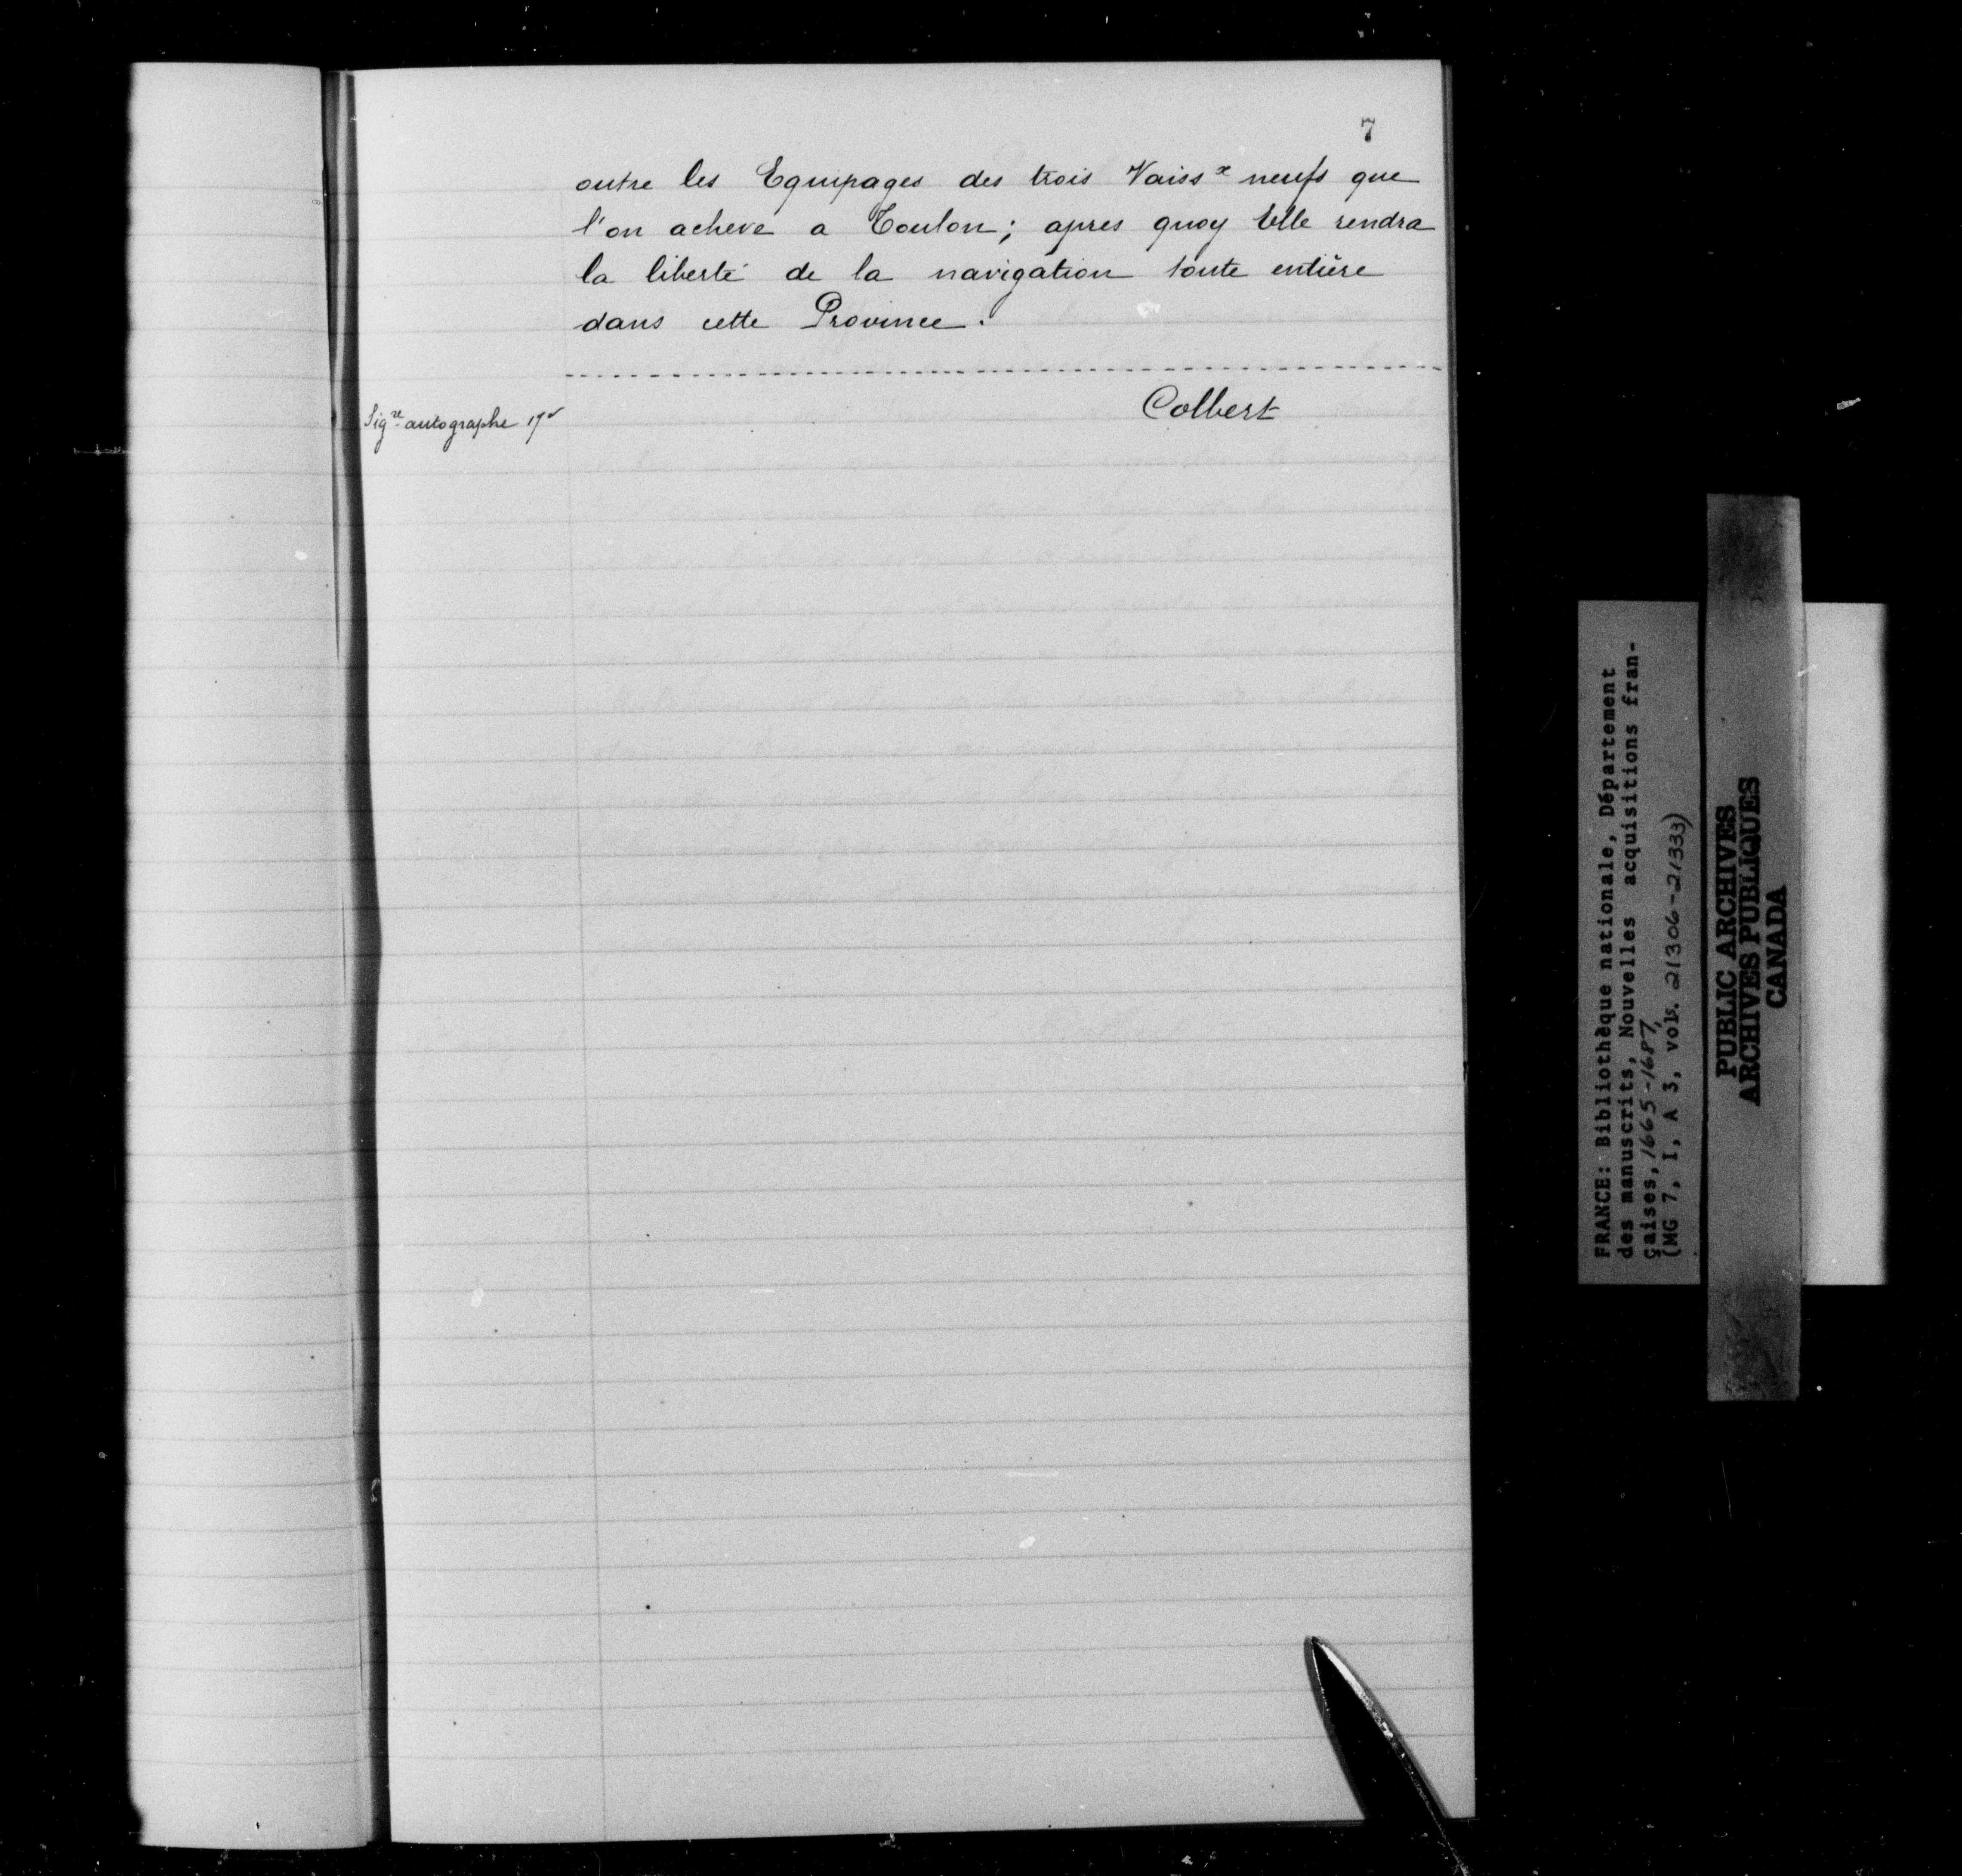 7
outre les Equipages des trois Vaissx neufs que
l'on acheve a Toulon; apres quoy Elle rendra
la liberté de la navigation toute entière
dans cette Province.
Colbert
Sigre autographe 17v
FRANCE: Bibliothèque nationale, Département
des manuscrits, Nouvelles acquisitions fran-
çaises, 1665-1687,
(MG 7, I, A 3, vols. 21306-21333)
PUBLIC ARCHIVES
ARCHIVES PUBLIQUES
CANADA